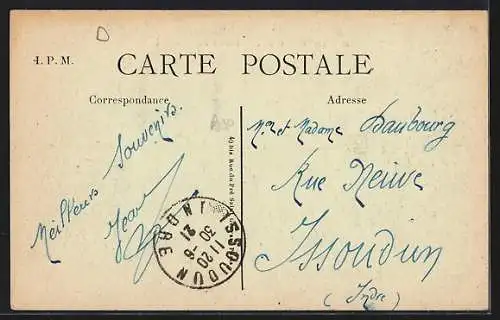 I. P. M.
CARTE POSTALE
Correspondance
Adresse
Meilleurs Souvenirs
Jean
Mr et Madame Daubourg
Rue Neuve
Issoudun
(Indre)
ISSOUDUN
INDRE
11 20
30 -6
21
D